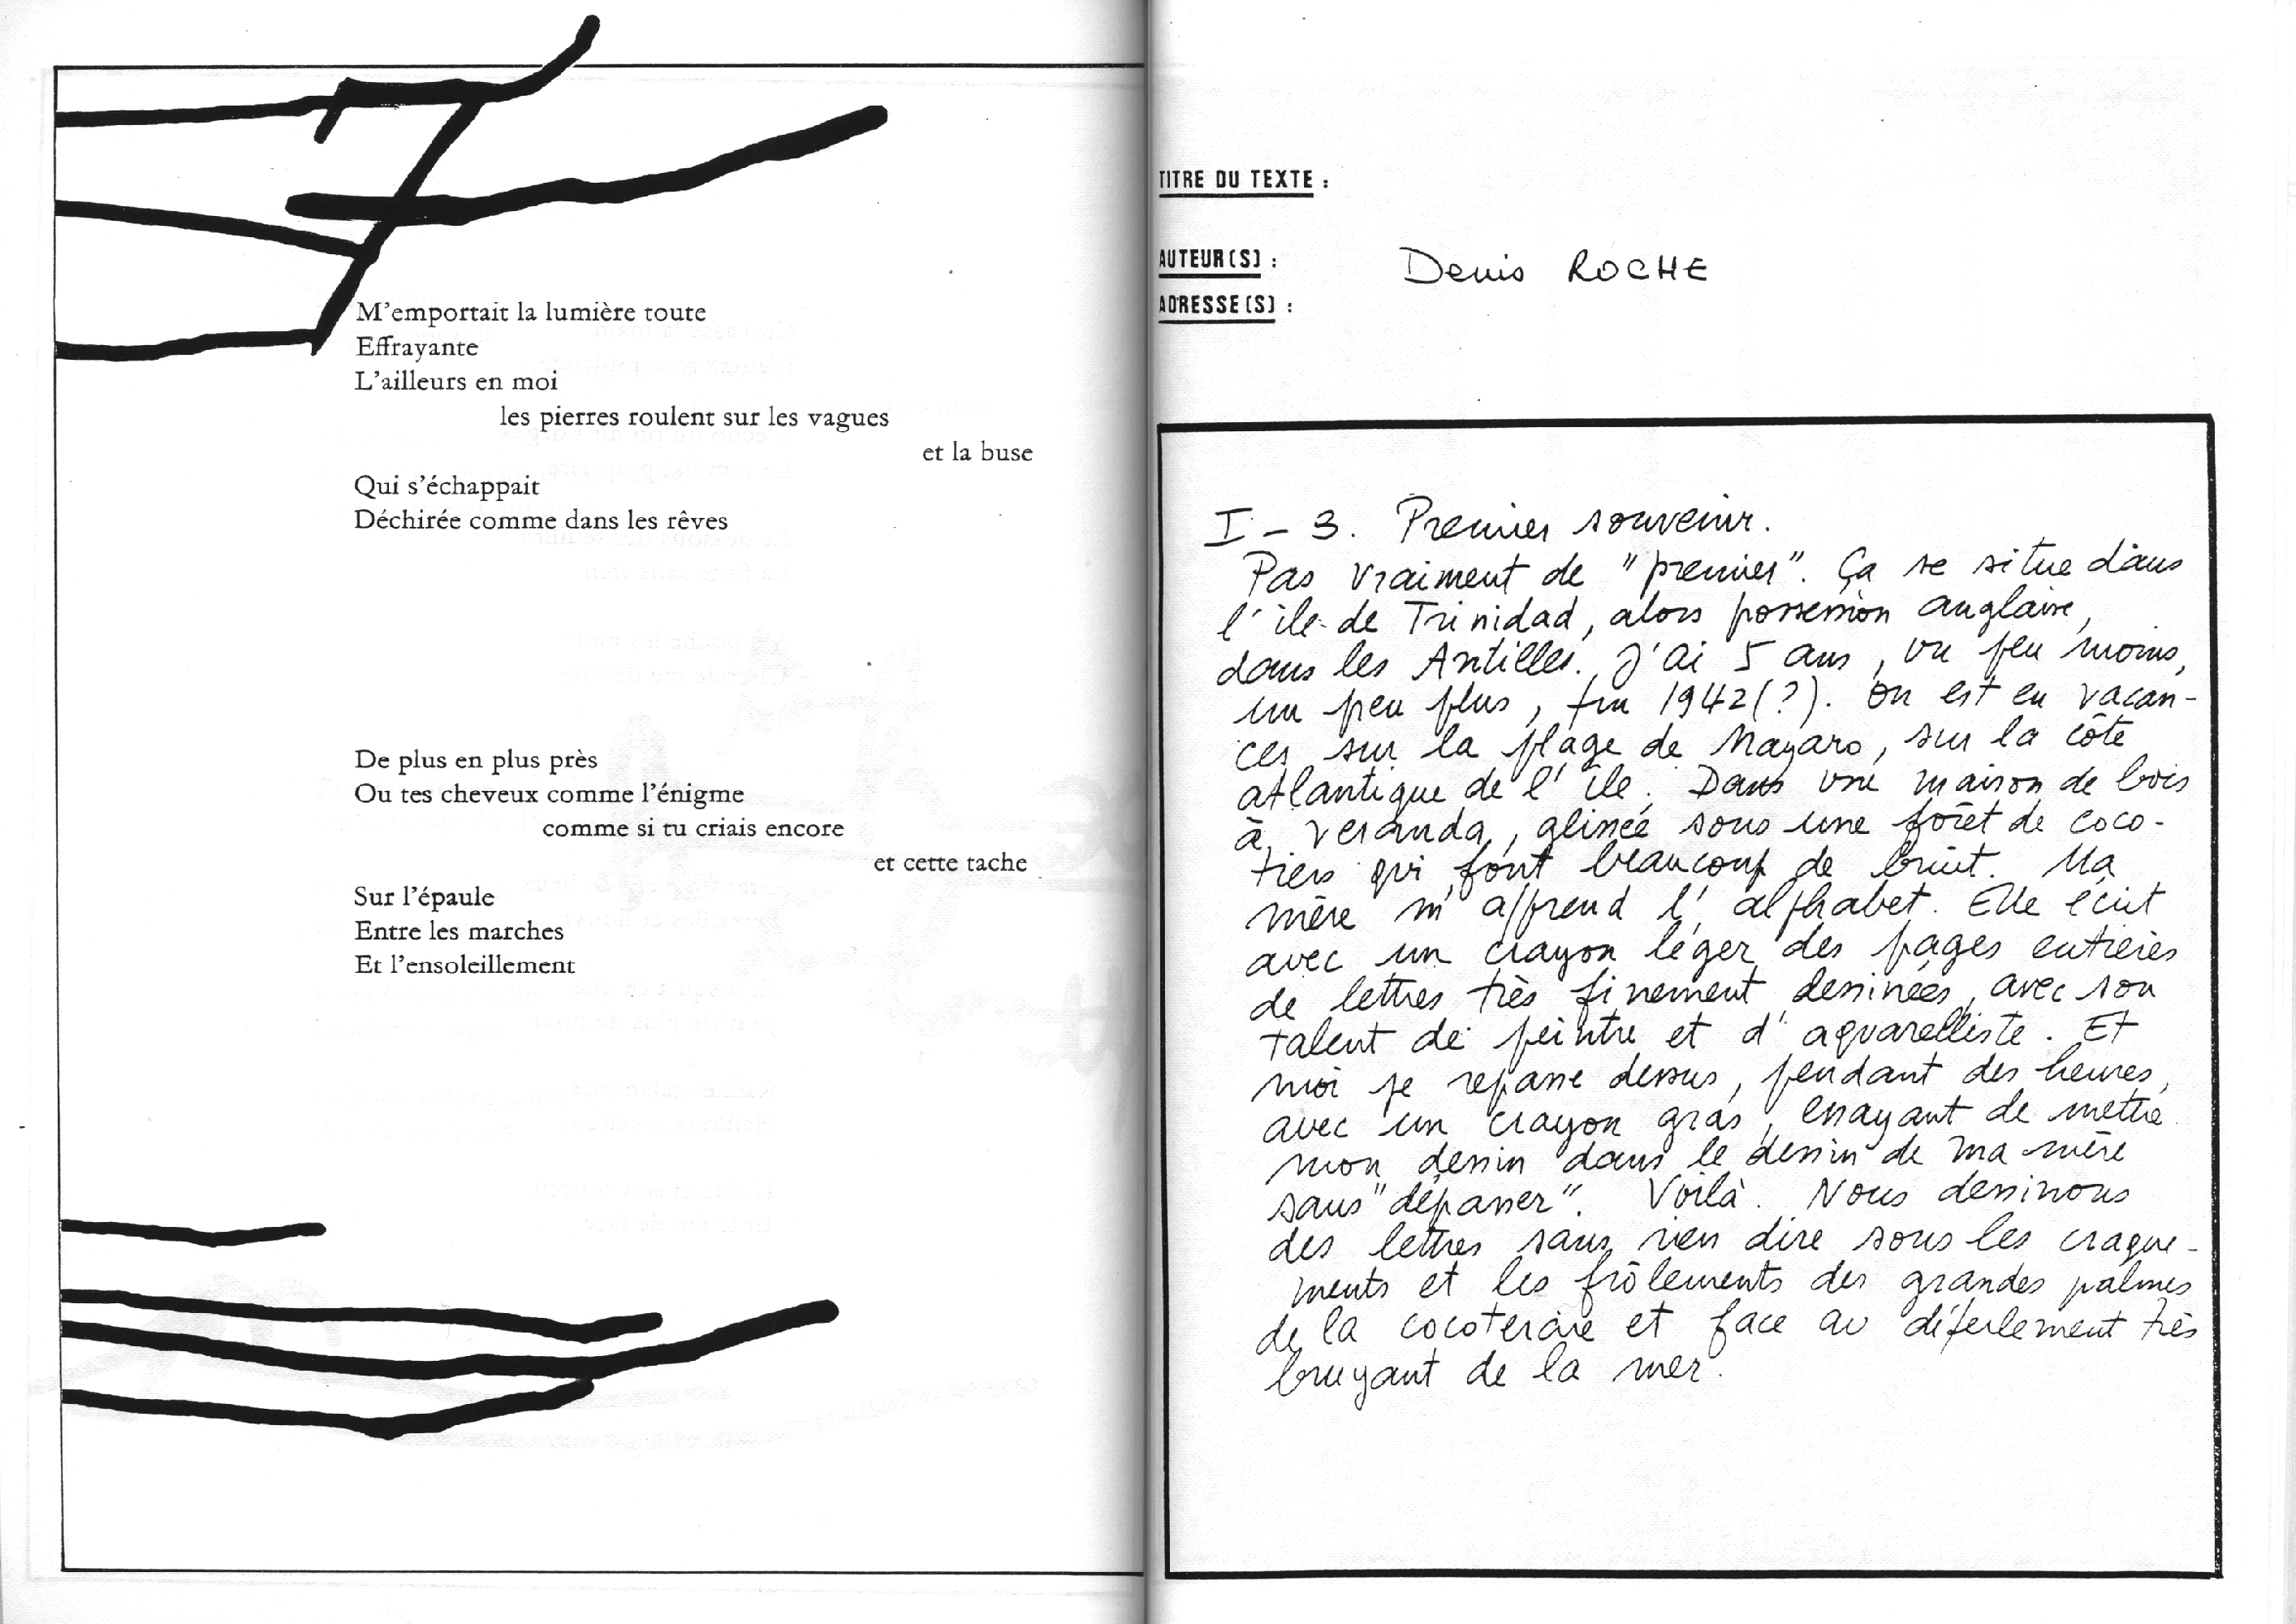 M'emportait la lumière toute
Effrayante
L'ailleurs en moi
les pierres roulent sur les vagues
et la buse
Qui s'échappait
Déchirée comme dans les rêves
De plus en plus près
Ou tes cheveux comme l'énigme
comme si tu criais encore
et cette tache
Sur l'épaule
Entre les marches
Et l'ensoleillement
TITRE DU TEXTE :
AUTEUR(S) : Denis ROCHE
ADRESSE(S) :
I - 3. Premier souvenir.
Pas vraiment de "premier". Ça se situe dans
l'île de Trinidad, alors possession anglaise,
dans les Antilles. J'ai 5 ans, un peu moins,
un peu plus, fin 1942(?). On est en vacan-
ces sur la plage de Mayaro, sur la côte
atlantique de l'île. Dans une maison de bois
à veranda, glissée sous une forêt de coco-
tiers qui font beaucoup de bruit. Ma
mère m'apprend l'alphabet. Elle écrit
avec un crayon léger des pages entières
de lettres très finement dessinées, avec son
talent de peintre et d'aquarelliste. Et
moi je repasse dessus, pendant des heures,
avec un crayon gras, essayant de mettre
mon dessin dans le dessin de ma mère
sans "dépasser". Voilà. Nous dessinons
des lettres sans rien dire sous les craque-
ments et les frôlements des grandes palmes
de la cocoteraie et face au déferlement très
bruyant de la mer.